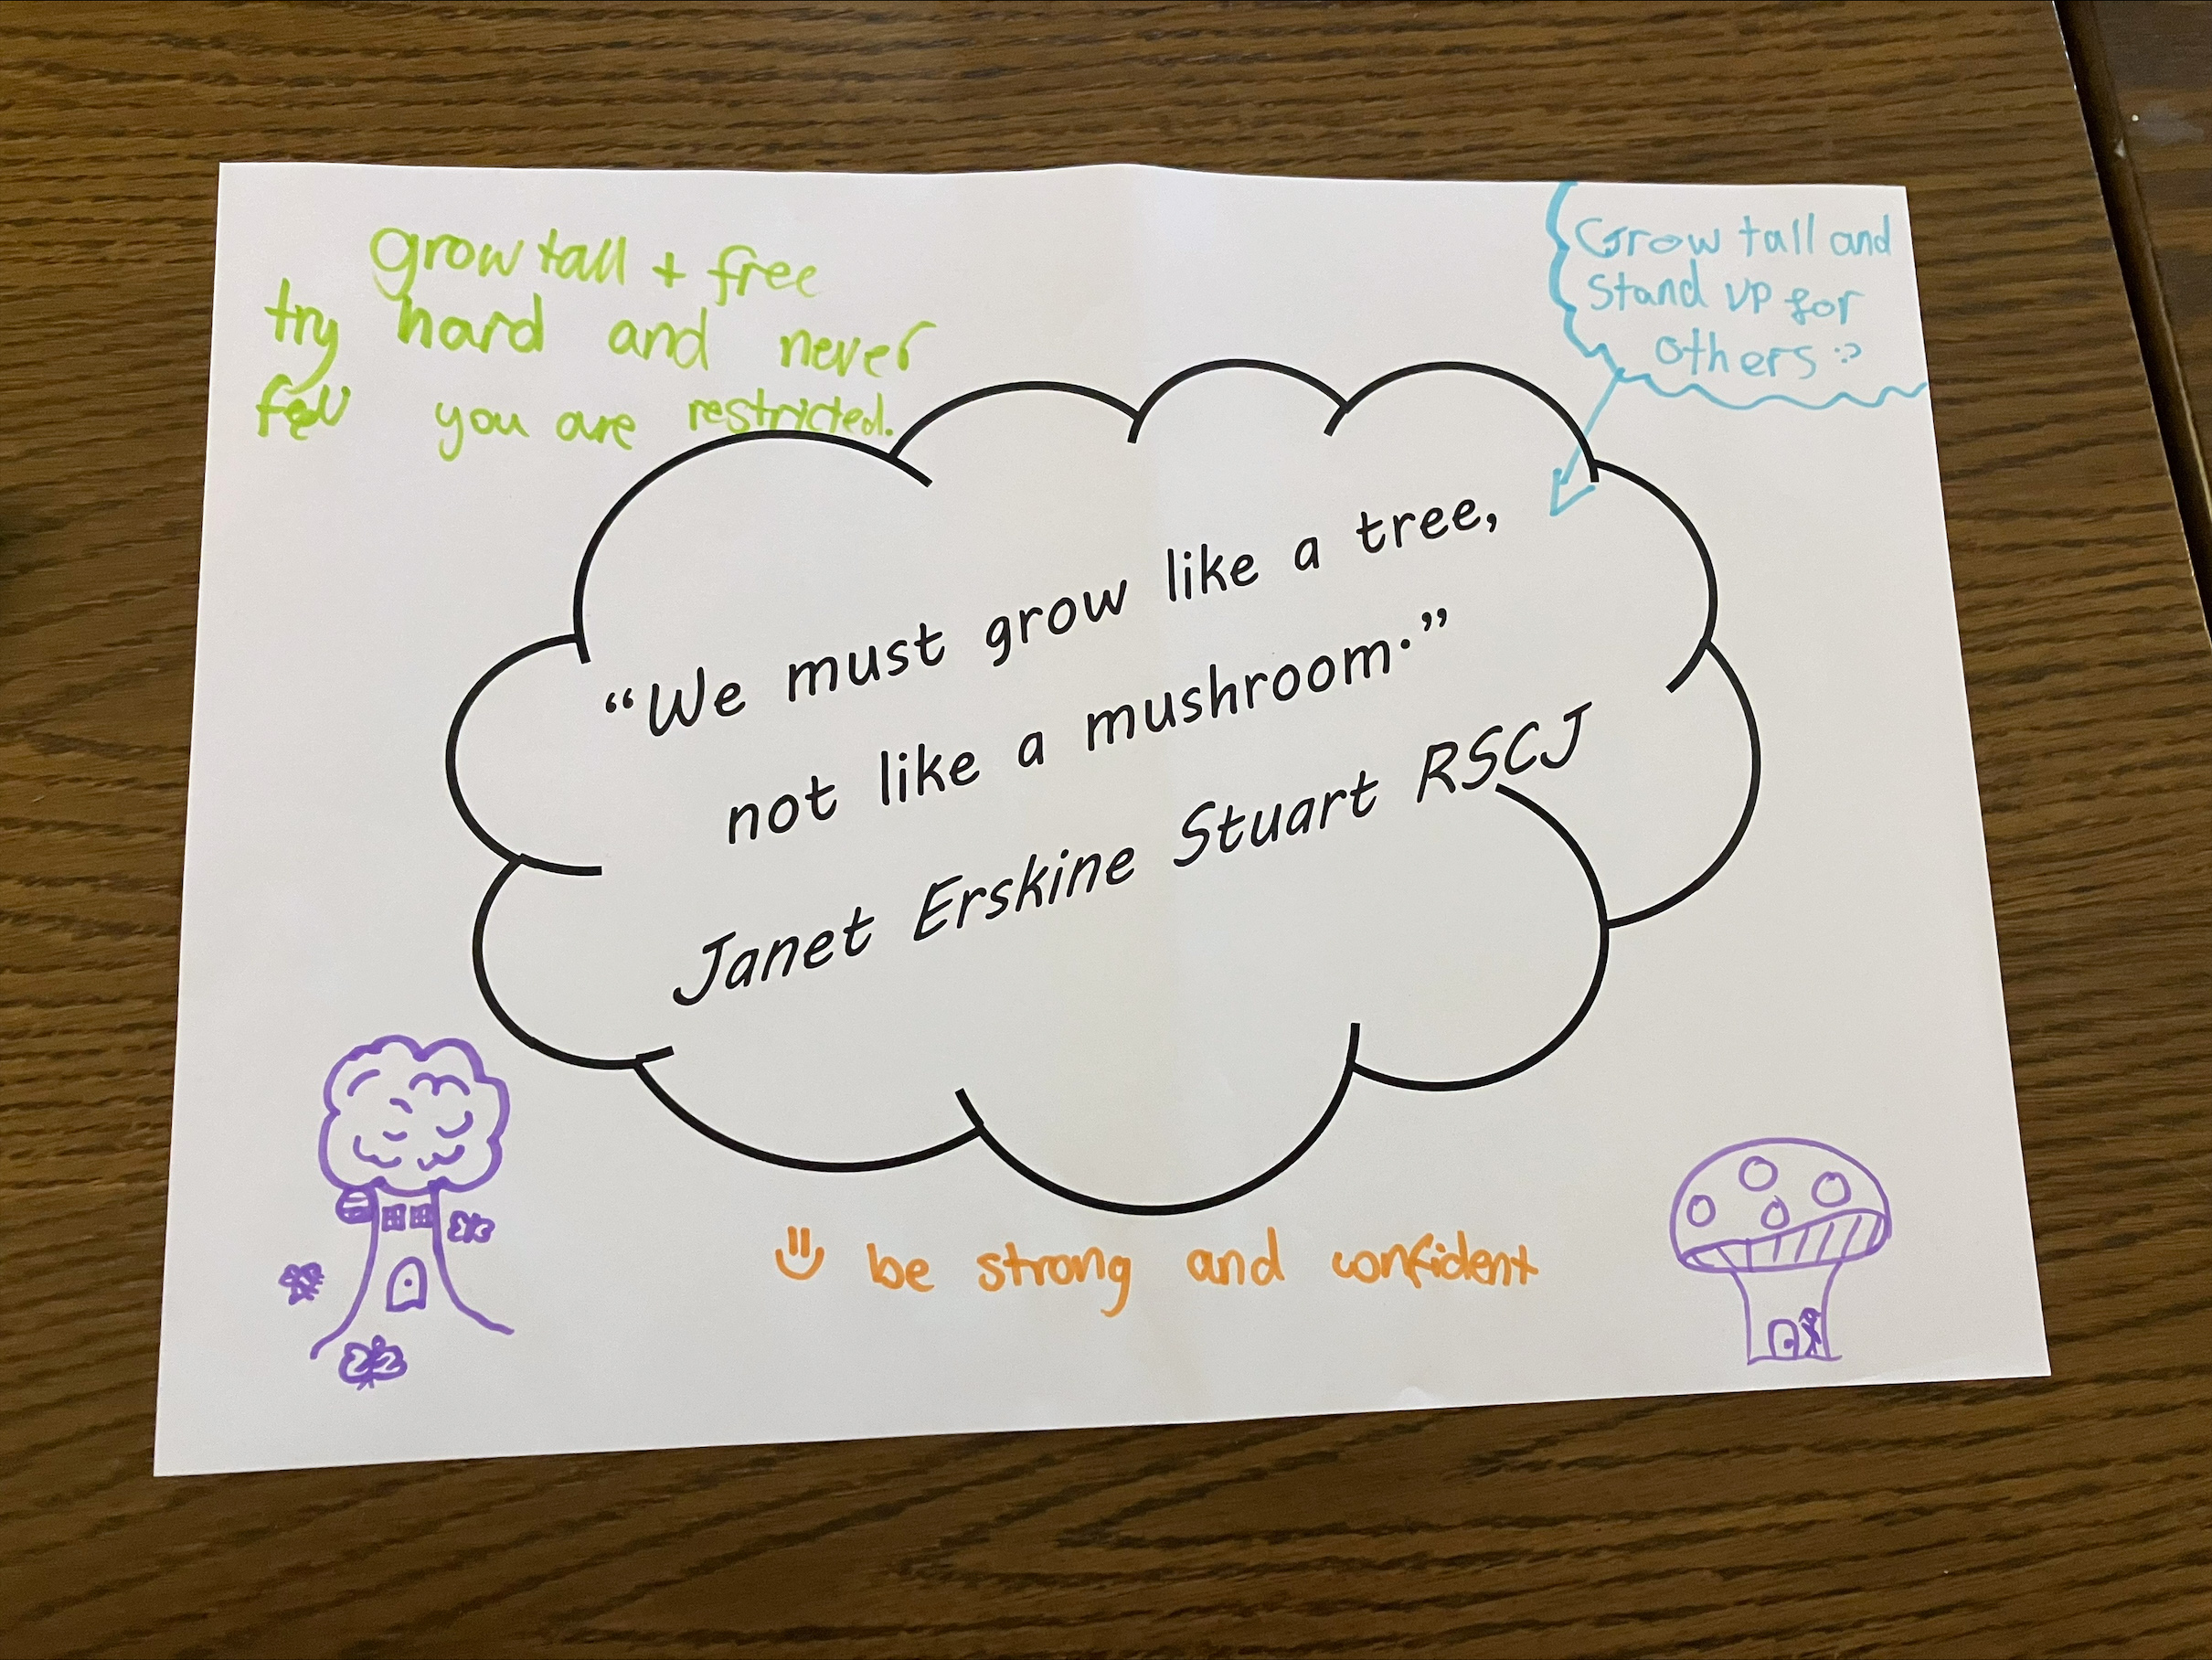 grow tall + free
try hard and never
feel you are restricted.
Grow tall and
stand up for
others :)
“We must grow like a tree,
not like a mushroom.”
Janet Erskine Stuart RSCJ
be strong and confident